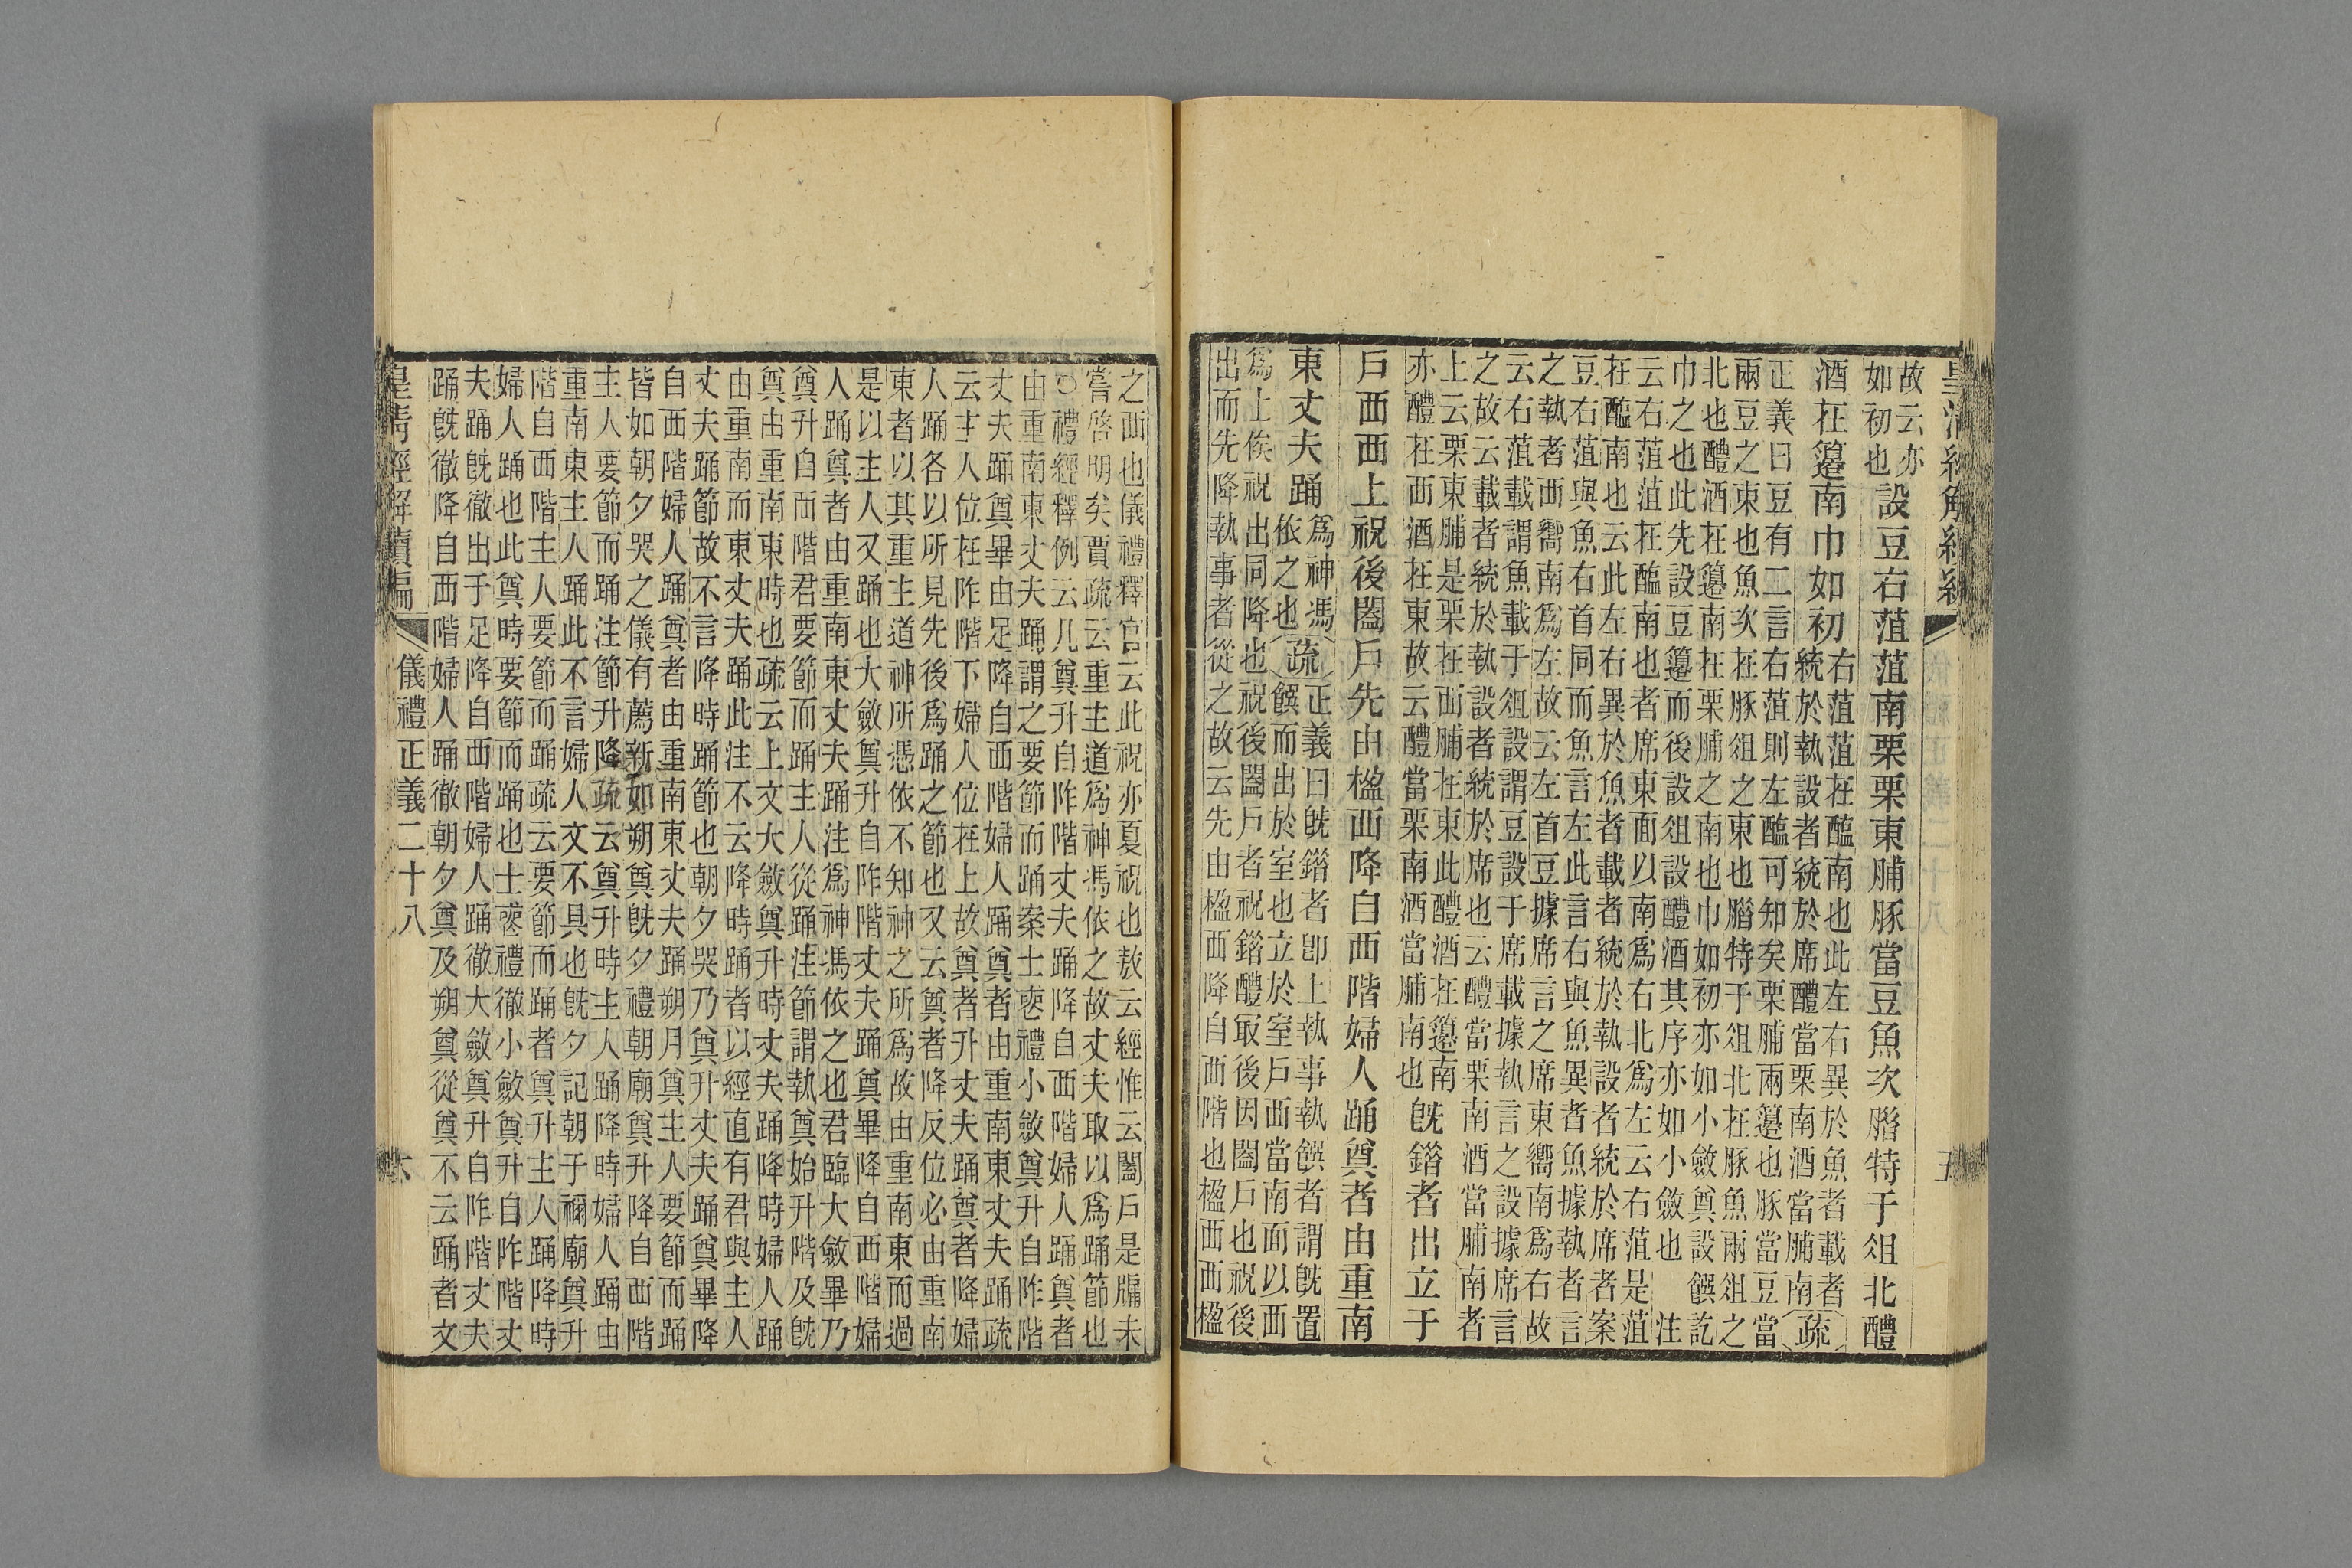 皇清經解續編 五
故云亦
如初也
設豆右菹菹南栗栗東脯豚當豆魚次腊特于俎北醴
酒在籩南巾如初
右菹菹在醢南也此左右異於魚者載者
統於執設者統於席醴當栗南酒當脯南
疏
正義曰豆有二言右菹則左醢可知矣栗脯兩籩也豚當豆當
兩豆之東也魚次在豚俎之東也腊特于俎北在豚魚兩俎之
北也醴酒在籩南在栗脯之南也巾如初亦如小斂奠設饌訖
巾之也此先設豆籩而後設俎設醴酒其序亦如小斂也 注
云右菹菹在醢南也者席東面以南爲右北爲左云右菹是菹
在醢南也云此左右異於魚者載者統於執設者統於席者案
豆右菹與魚右首同而魚言左此言右與魚異者魚據執者言
之執者西嚮南爲左故云左首豆據席言之席東嚮南爲右故
云右菹載謂魚載于俎設謂豆設于席載據執言之設據席言
之故云載者統於執設者統於席也云醴當栗南酒當脯南者
上云栗東脯是栗在西脯在東此醴酒在籩南
亦醴在西酒在東故云醴當栗南酒當脯南也
既錯者出立于
戶西西上祝後闔戶先由楹西降自西階婦人踊奠者由重南
東丈夫踊
爲神馮
依之也
疏
正義曰既錯者卽上執事執饌者謂既置
饌而出於室也立於室戶西當南面以西
爲上俟祝出同降也祝後闔戶者祝錯醴最後因闔戶也祝後
出而先降執事者從之故云先由楹西降自西階也楹西西楹
之西也儀禮釋官云此祝亦夏祝也敖云經惟云闔戶是牖未
嘗啓明矣賈疏云重主道爲神馮依之故丈夫取以爲踊節也
○禮經釋例云凡奠升自阼階丈夫踊降自西階婦人踊奠者
由重南東丈夫踊謂之要節而踊案士喪禮小斂奠升自阼階
丈夫踊奠畢由足降自西階婦人踊奠者由重南東丈夫踊疏
云主人位在阼階下婦人位在上故奠者升丈夫踊奠者降婦
人踊各以所見先後爲踊之節也又云奠者降反位必由重南
東者以其重主道神所憑依不知神之所爲故由重南東而過
是以主人又踊也大斂奠升自阼階丈夫踊奠畢降自西階婦
人踊奠者由重南東丈夫踊注爲神馮依之也君臨大斂畢乃
奠升自西階君要節而踊主人從踊注節謂執奠始升階及既
奠出重南東時也疏云上文大斂奠升時丈夫踊降時婦人踊
由重南而東丈夫踊此注不云降時踊者以經直有君與主人
丈夫踊節故不言降時踊節也朝夕哭乃奠升丈夫踊奠畢降
自西階婦人踊奠者由重南東丈夫踊朔月奠主人要節而踊
皆如朝夕哭之儀有薦新如朔奠既夕禮朝廟奠升降自西階
主人要節而踊注節升降疏云奠升時主人踊降時婦人踊由
重南東主人踊此不言婦人文不具也既夕記朝于禰廟奠升
階自西階主人要節而踊疏云要節而踊者奠升主人踊降時
婦人踊也此奠時要節而踊也士喪禮徹小斂奠升自阼階丈
夫踊既徹出于足降自西階婦人踊徹大斂奠升自阼階丈夫
踊既徹降自西階婦人踊徹朝夕奠及朔奠從奠不云踊者文
皇清經解續編 儀禮正義二十八 六